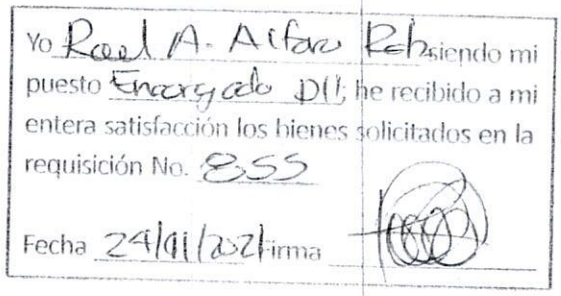 Yo Rael A. Alfaro Reh siendo mi
puesto Encargado DII, he recibido a mi
entera satisfacción los bienes solicitados en la
requisición No. 855
Fecha 24/01/2021 Firma